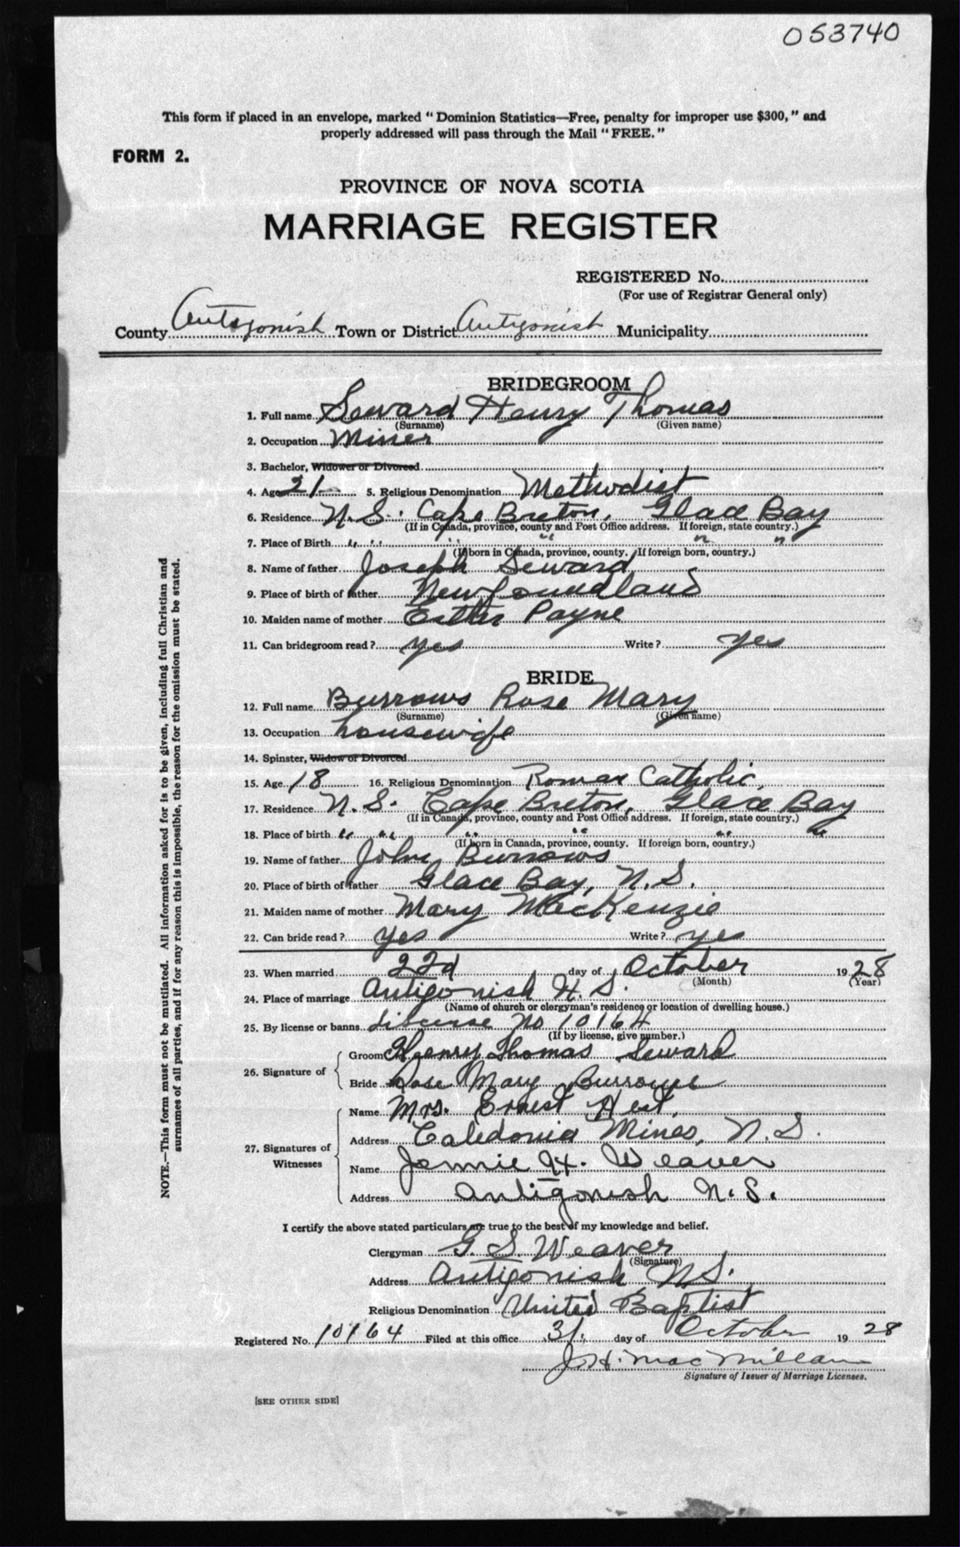 053740
This form if placed in an envelope, marked "Dominion Statistics—Free, penalty for improper use $300," and
properly addressed will pass through the Mail "FREE."
FORM 2.
PROVINCE OF NOVA SCOTIA
MARRIAGE REGISTER
REGISTERED No.
(For use of Registrar General only)
County Antigonish Town or District Antigonish Municipality
BRIDEGROOM
1. Full name Seward Henry Thomas
(Surname) (Given name)
2. Occupation Miner
3. Bachelor, Widower or Divorced
4. Age 21 5. Religious Denomination Methodist
6. Residence N.S. Cape Breton, Glace Bay
(If in Canada, province, county and Post Office address. If foreign, state country.)
7. Place of Birth " " " " " "
(If born in Canada, province, county. If foreign born, country.)
8. Name of father Joseph Seward
9. Place of birth of father Newfoundland
10. Maiden name of mother Esther Payne
11. Can bridegroom read? yes Write? yes
BRIDE
12. Full name Burrows Rose Mary
(Surname) (Given name)
13. Occupation housewife
14. Spinster, Widow or Divorced
15. Age 18 16. Religious Denomination Roman Catholic
17. Residence N.S. Cape Breton, Glace Bay
(If in Canada, province, county and Post Office address. If foreign, state country.)
18. Place of birth " " " " " "
(If born in Canada, province, county. If foreign born, country.)
19. Name of father John Burrows
20. Place of birth of father Glace Bay, N.S.
21. Maiden name of mother Mary MacKenzie
22. Can bride read? yes Write? yes
23. When married 22d day of October 1928
(Month) (Year)
24. Place of marriage Antigonish N.S.
(Name of church or clergyman's residence or location of dwelling house.)
25. By license or banns License No 10164
(If by license, give number.)
26. Signature of
Groom Henry Thomas Seward
Bride Rose Mary Burrows
27. Signatures of Witnesses
Name Mrs. Ernest
Address Caledonia Mines, N.S.
Name Jennie H. Weaver
Address Antigonish N.S.
I certify the above stated particulars are true to the best of my knowledge and belief.
Clergyman G. S. Weaver
(Signature)
Address Antigonish N.S.
Religious Denomination United Baptist
Registered No. 10164 Filed at this office 31. day of October 1928
J. H. MacMillan
Signature of Issuer of Marriage Licenses.
[SEE OTHER SIDE]
NOTE.—This form must not be mutilated. All information asked for is to be given, including full Christian and
surnames of all parties, and if for any reason this is impossible, the reason for the omission must be stated.